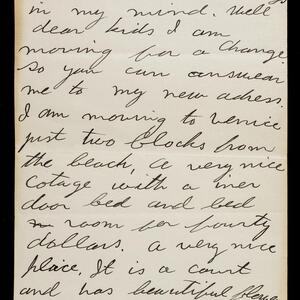 in my mind. Well
dear kids I am
moving for a Change.
so you can answear
me to my new adress.
I am moving to Venice
just two blocks from
the beach, a very nice
cotage with a iner
door bed and bed
room for fourty
dollars. a very nice
place. It is a court
and has beautiful flowe